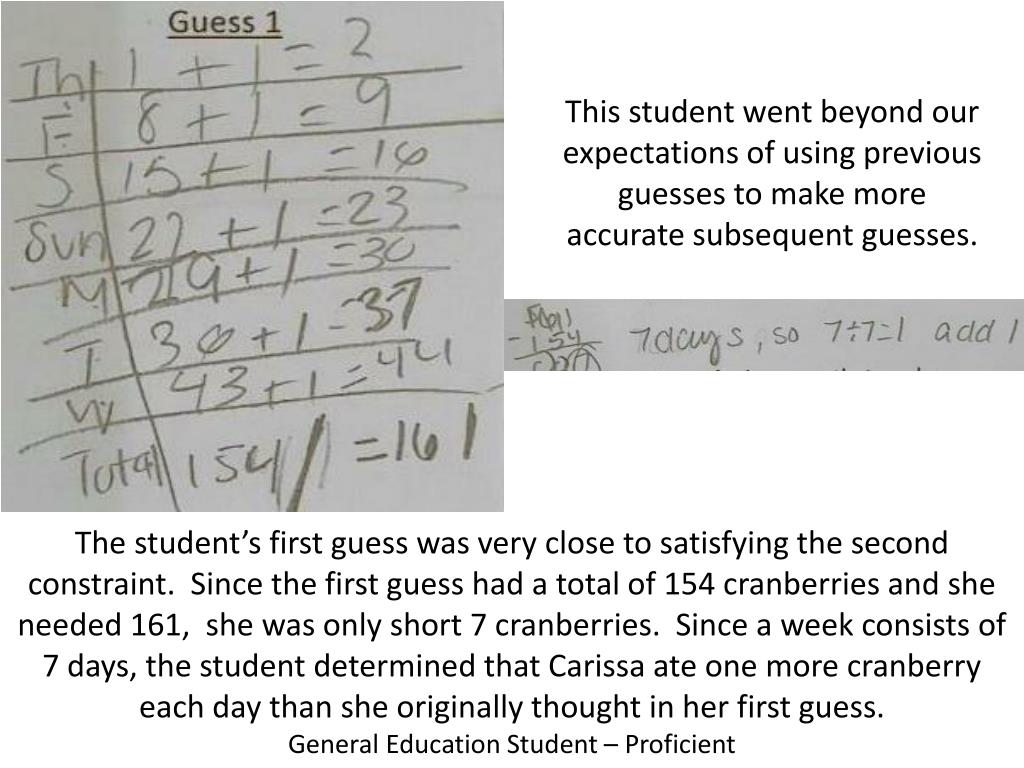 Guess 1
Th 1 + 1 = 2
F 8 + 1 = 9
S 15 + 1 = 16
Sun 22 + 1 = 23
M 29 + 1 = 30
T 36 + 1 = 37
W 43 + 1 = 44
Total 154 = 161
This student went beyond our
expectations of using previous
guesses to make more
accurate subsequent guesses.
- 154
7days, so 7÷7=1 add 1
The student’s first guess was very close to satisfying the second
constraint. Since the first guess had a total of 154 cranberries and she
needed 161, she was only short 7 cranberries. Since a week consists of
7 days, the student determined that Carissa ate one more cranberry
each day than she originally thought in her first guess.
General Education Student – Proficient